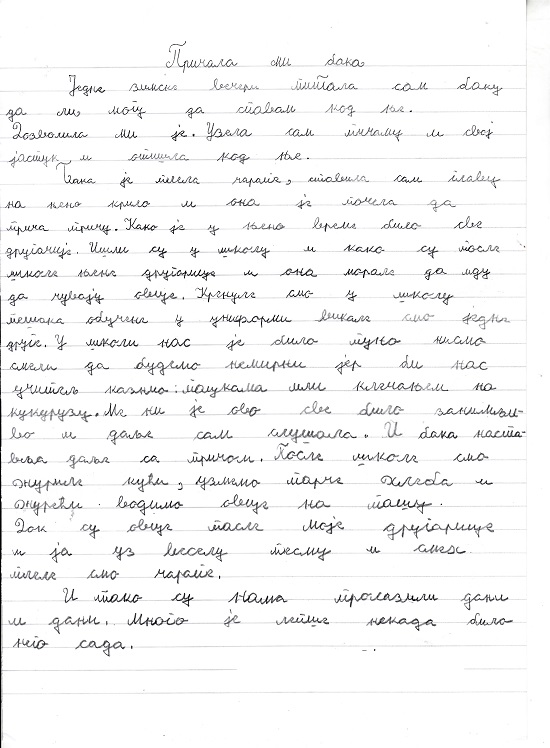 Причала ми бака
Једне зимске вечери питала сам баку
да ли могу да спавам код ње.
Дозволила ми је. Узела сам пиџаму и свој
јастук и отишла код ње.
Бака је плела чарапе, ставила сам главу
на њено крило и она је почела да
прича причу. Како је у њено време било све
другачије. Ишли су у школу и како су после
школе њене другарице и она морале да иду
да чувају овце. Кренуле смо у школу
пешака обучене у униформи викале смо једне
друге. У школи нас је било пуно нисмо
смели да будемо немирни јер би нас
учитељ казнио: пацкама или клечањем на
кукурузу. Ме ни је ово све било занимљи-
во и даље сам слушала. И бака наста-
вља даље са причом. После школе смо
журиле кући, узмемо парче хлеба и
журећи водимо овце на пашу.
Док су овце пасле моје другарице
и ја уз веселу песму и смех
плеле смо чарапе.
И тако су нама пролазили дани
и дани. Много је лепше некада било
него сада.